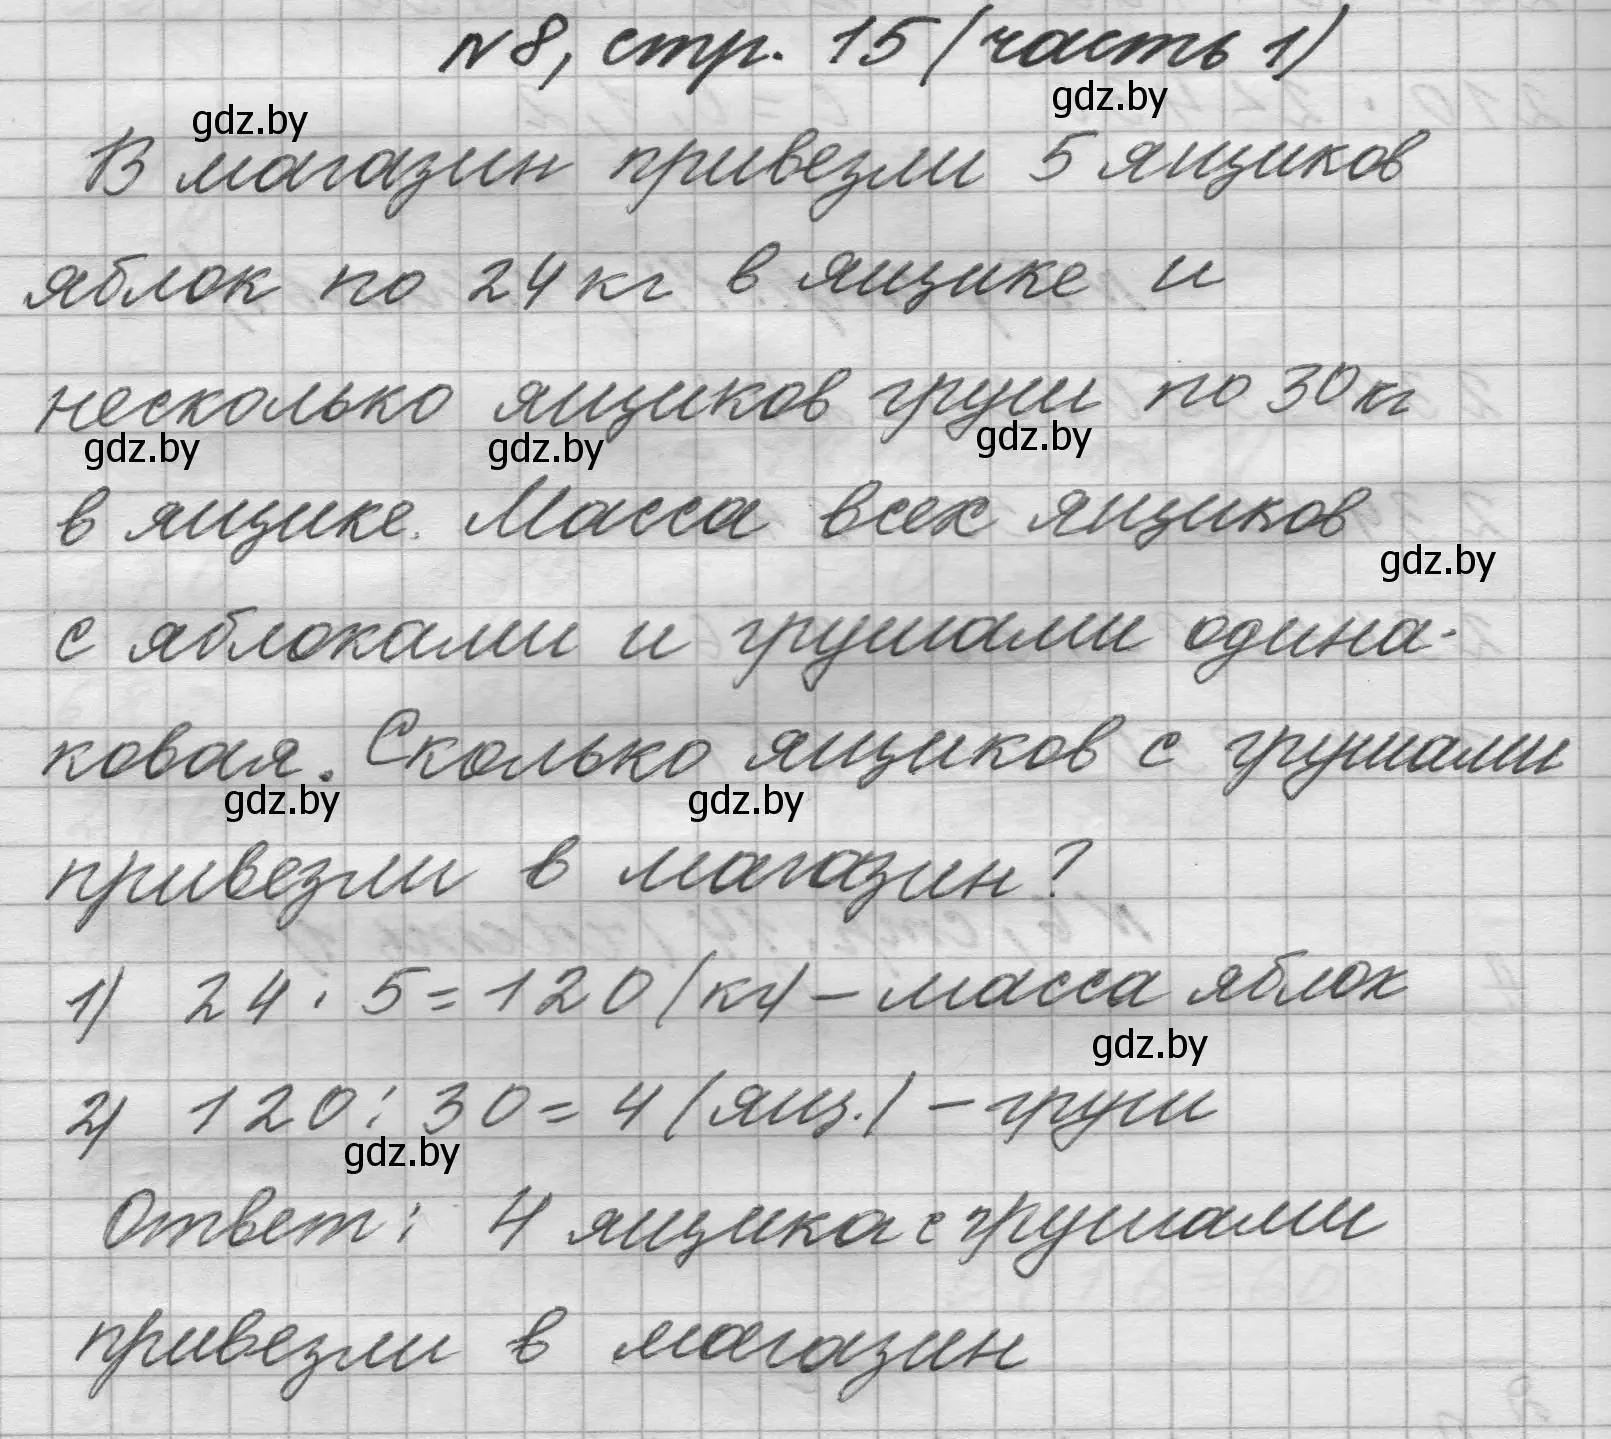 №8, стр. 15 (часть 1)
gdz.by
gdz.by
В магазин привезли 5 ящиков
яблок по 24 кг в ящике и
несколько ящиков груш по 30 кг
gdz.by gdz.by gdz.by
в ящике. Масса всех ящиков
gdz.by
с яблоками и грушами одина-
ковая. Сколько ящиков с грушами
gdz.by gdz.by
привезли в магазин?
1) 24 · 5 = 120 (кг) – масса яблок
gdz.by
2) 120 : 30 = 4 (ящ.) – груш
gdz.by
Ответ: 4 ящика с грушами
привезли в магазин